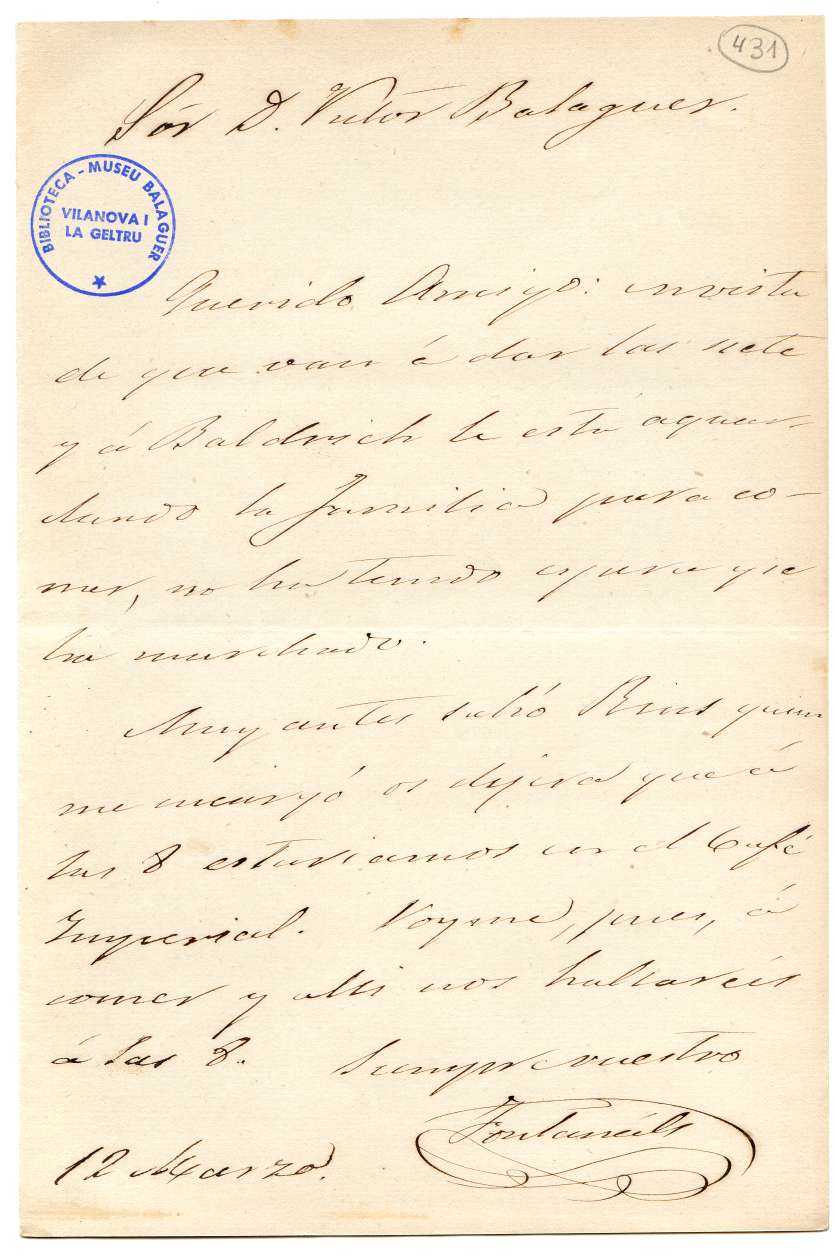 431
Sór D. Victor Balaguer.
BIBLIOTECA - MUSEU BALAGUER
VILANOVA I
LA GELTRU
Querido Amigo: en vista
de que van á dar las siete
y á Baldrich le está aguar-
dando la familia para co-
mer, no ha tenido espera y se
ha marchado.
Muy antes salió Rius quien
me encargó os dijera que á
las 8 estariamos en el Café
Imperial. Voyme, pues, á
comer y alli nos hallareis
á las 8. Siempre vuestro
Fontanals
12 Marzo.